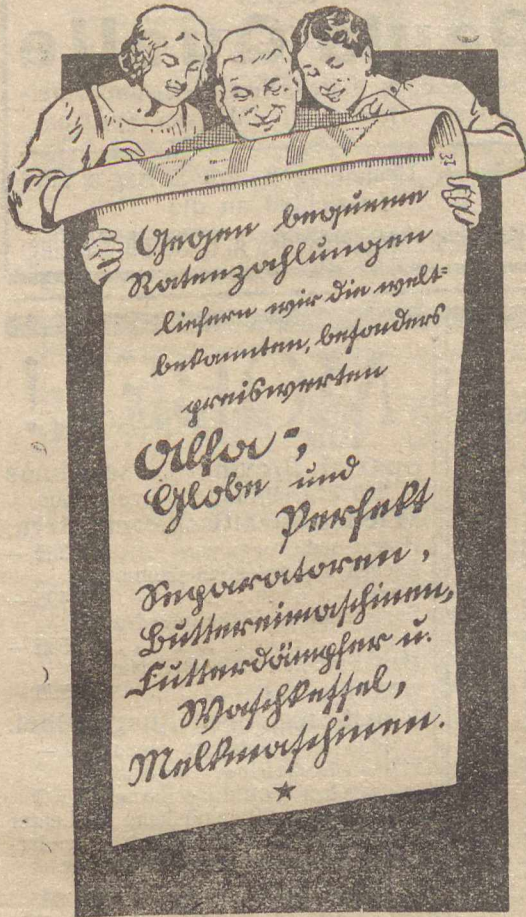 Gegen bequeme
Ratenzahlungen
liefern wir die welt-
bekannten, besonders
preiswerten
Alfa-,
Globe und
Perfekt
Separatoren,
Buttereimaschinen,
Futterdämpfer u.
Waschkessel,
Melkmaschinen.